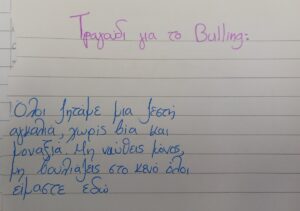 Τραγούδι για το Bulling:
Όλοι ζητάμε μια ζεστή
αγκαλιά, χωρίς βία και
μοναξιά. Μη νιώθεις μόνος,
μη βουλιάζεις στο κενό όλοι
είμαστε εδώ